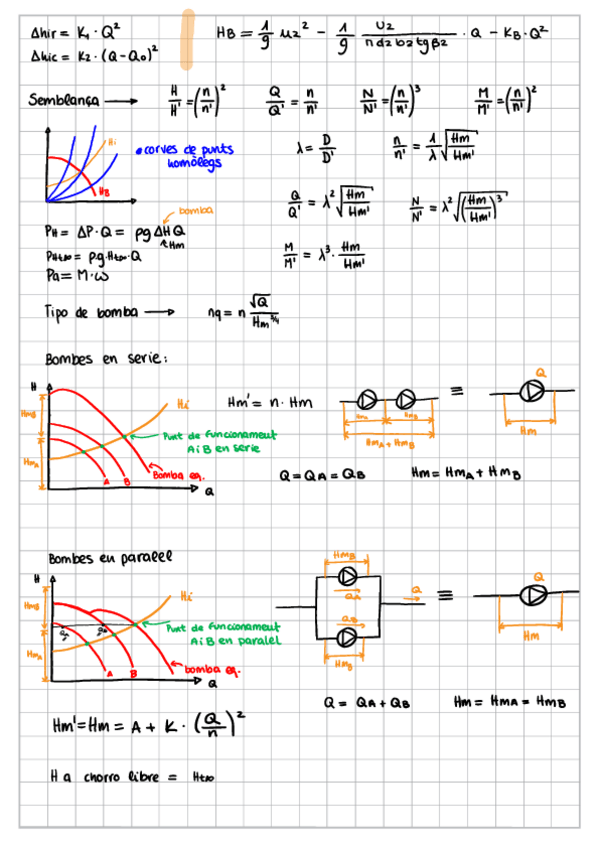 Δhir = K₁ · Q²
HB = 1/g u₂² − 1/g u₂/(π d₂ b₂ tg β₂) · Q − K_B · Q²
Δhic = K₂ · (Q − Q₀)²
Semblança → H/H' = (n/n')² Q/Q' = n/n' N/N' = (n/n')³ M/M' = (n/n')²
Hi
• corves de punts homòlegs
HB
λ = D/D' n/n' = 1/λ √(Hm/Hm')
Q/Q' = λ² √(Hm/Hm') N/N' = λ² √((Hm/Hm')³)
bomba
PH = ΔP · Q = ρg ΔH Q
Hm
ρg · Q
M/M' = λ³ · Hm/Hm'
Pa = M · ω
Tipo de bomba → nq = n √Q / Hm^3/4
Bombes en serie:
H
HmB
HmA
Hi
Punt de funcionament
A i B en serie
A
B
Bomba eq.
Q
Hm' = n · Hm
HmA
HmB
HmA + HmB
≡
Q
Hm
Q = QA = QB Hm = HmA + HmB
Bombes en paralel
H
HmB
HmA
Hi
Punt de funcionament
A i B en paralel
A
B
bomba eq.
Q
HmB
QA
QB
HmB
Q
≡
Q
Hm
Q = QA + QB Hm = HmA = HmB
Hm' = Hm = A + K · (Q/n)²
H a chorro libre =